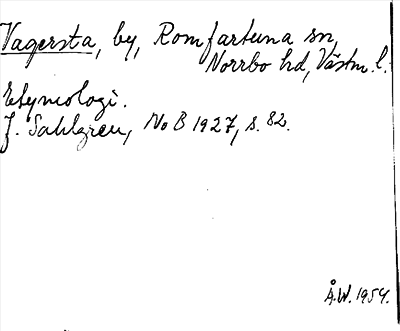 Vagersta, by, Romfartuna sn,
Norrbo hd, Västm. l.
Etymologi.
J. Sahlgren, NoB 1927, s. 82.
Å.W. 1954.